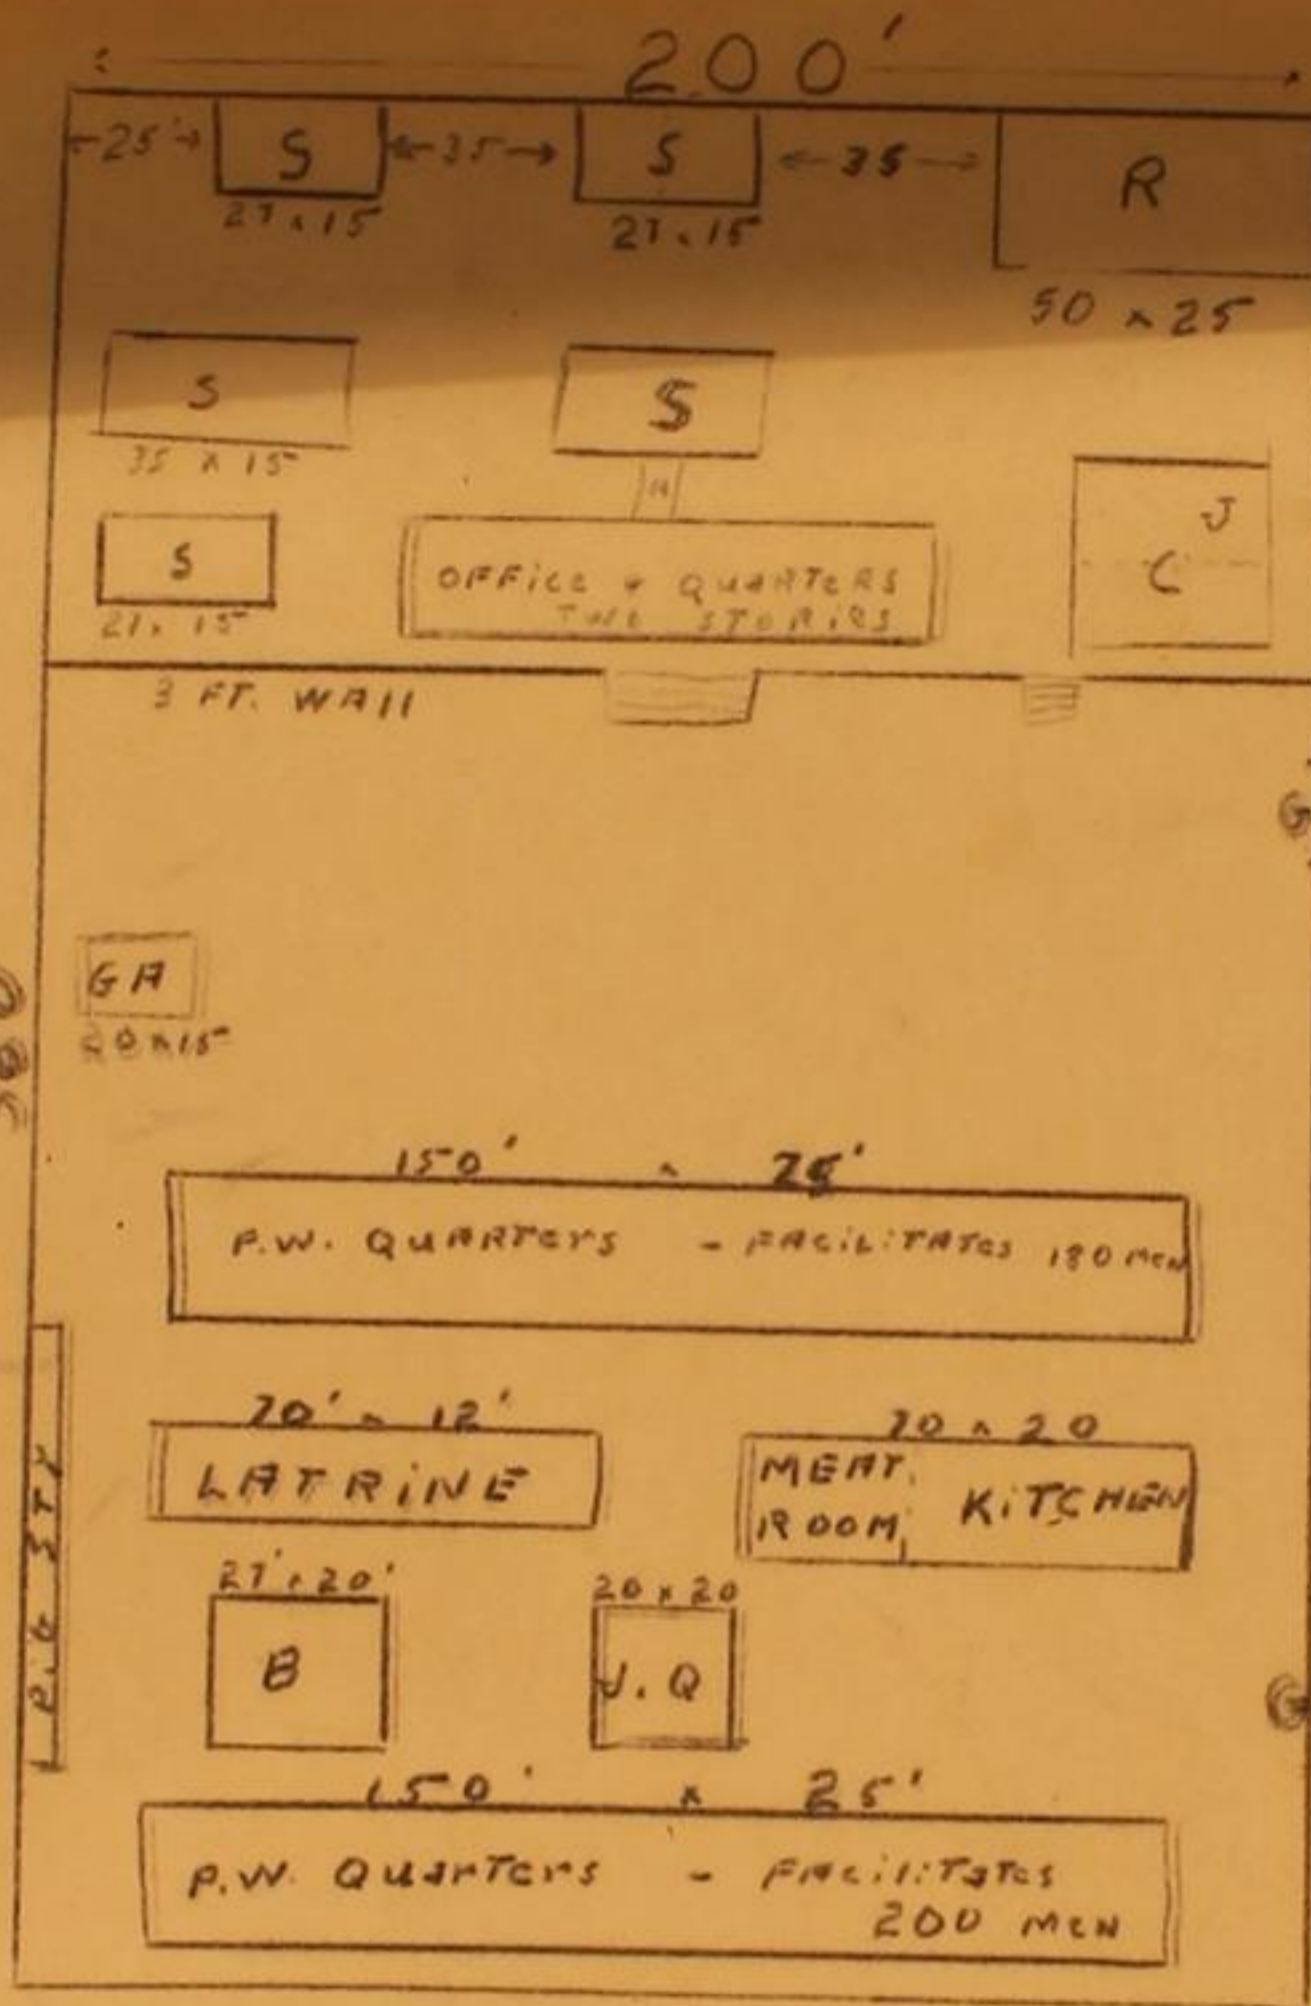 200'
25'
S
35
S
35
R
27 x 15
27 x 15
50 x 25
S
35 x 15
S
H
J
C
S
21 x 15
OFFICE & QUARTERS
TWO STORIES
3 FT. WAll
G
GA
20 x 15
150' x 25'
P.W. QUARTErS - FACiLiTATes 180 MeN
70' x 12'
LATRiNE
70 x 20
MEAT ROOM
KiTCHEN
PiG STY
27' x 20'
B
20 x 20
J.Q
G
150' x 25'
P.W. QuarTers - FACiliTaTes
200 MeN